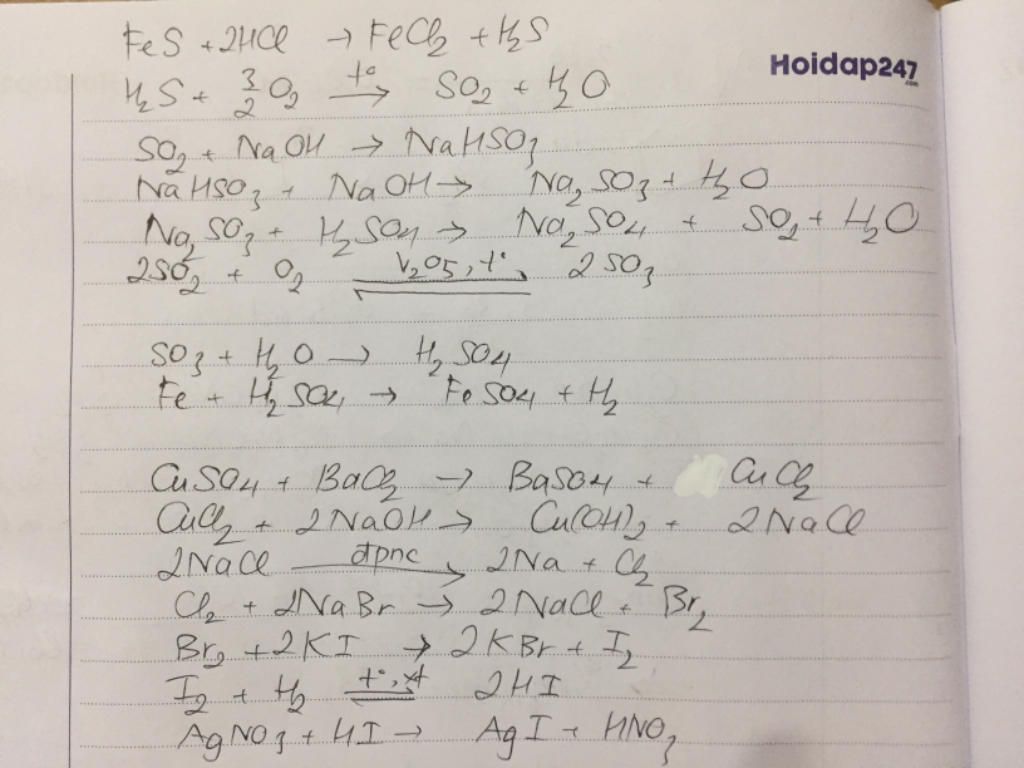 FeS + 2HCl → FeCl₂ + H₂S
Hoidap247
.com
H₂S + 3/2 O₂ →(t°) SO₂ + H₂O
SO₂ + NaOH → NaHSO₃
NaHSO₃ + NaOH → Na₂SO₃ + H₂O
Na₂SO₃ + H₂SO₄ → Na₂SO₄ + SO₂ + H₂O
2SO₂ + O₂ ⇌(V₂O₅, t°) 2SO₃
SO₃ + H₂O → H₂SO₄
Fe + H₂SO₄ → FeSO₄ + H₂
CuSO₄ + BaCl₂ → BaSO₄ + CuCl₂
CuCl₂ + 2NaOH → Cu(OH)₂ + 2NaCl
2NaCl →(đpnc) 2Na + Cl₂
Cl₂ + 2NaBr → 2NaCl + Br₂
Br₂ + 2KI → 2KBr + I₂
I₂ + H₂ ⇌(t°, xt) 2HI
AgNO₃ + HI → AgI + HNO₃